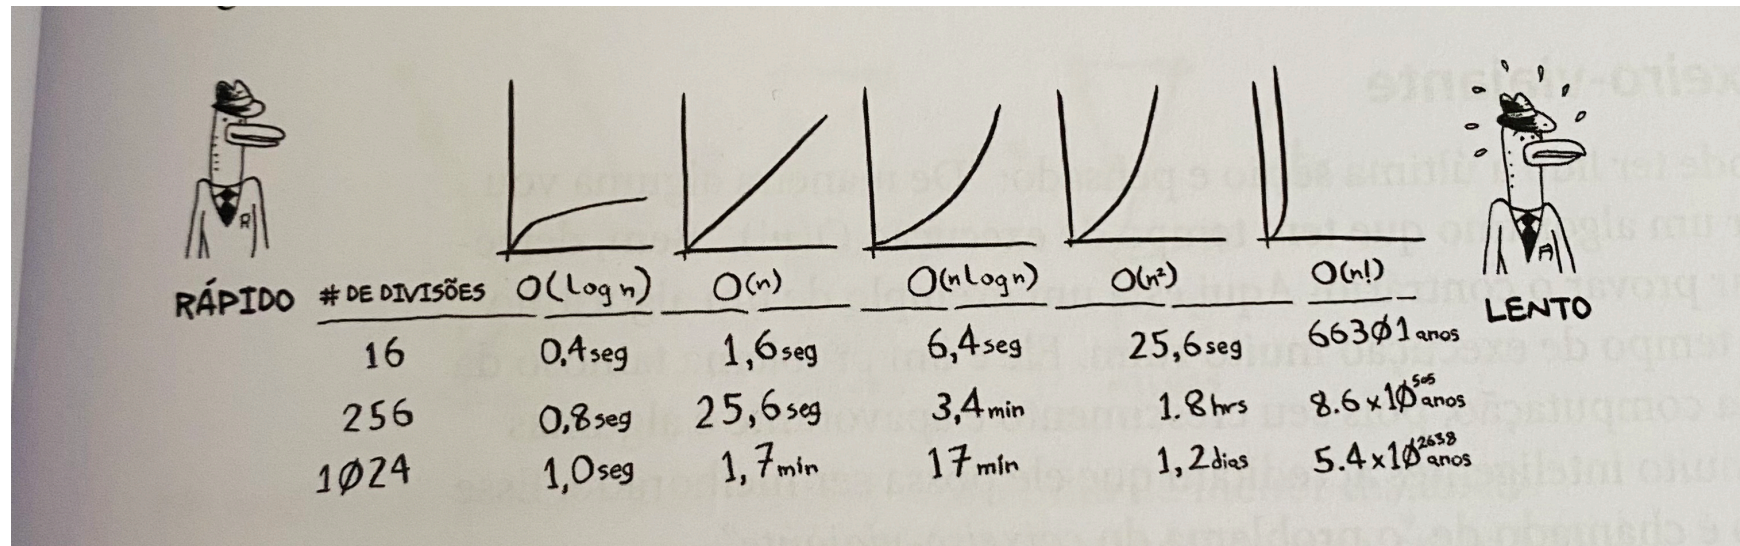 RÁPIDO # DE DIVISÕES O(log n) O(n) O(n log n) O(n²) O(n!) LENTO
16 0,4 seg 1,6 seg 6,4 seg 25,6 seg 663Ø1 anos
256 0,8 seg 25,6 seg 3,4 min 1.8 hrs 8.6 x 1Ø⁵⁰⁵ anos
1Ø24 1,0 seg 1,7 min 17 min 1,2 dias 5.4 x 1Ø²⁶³⁸ anos